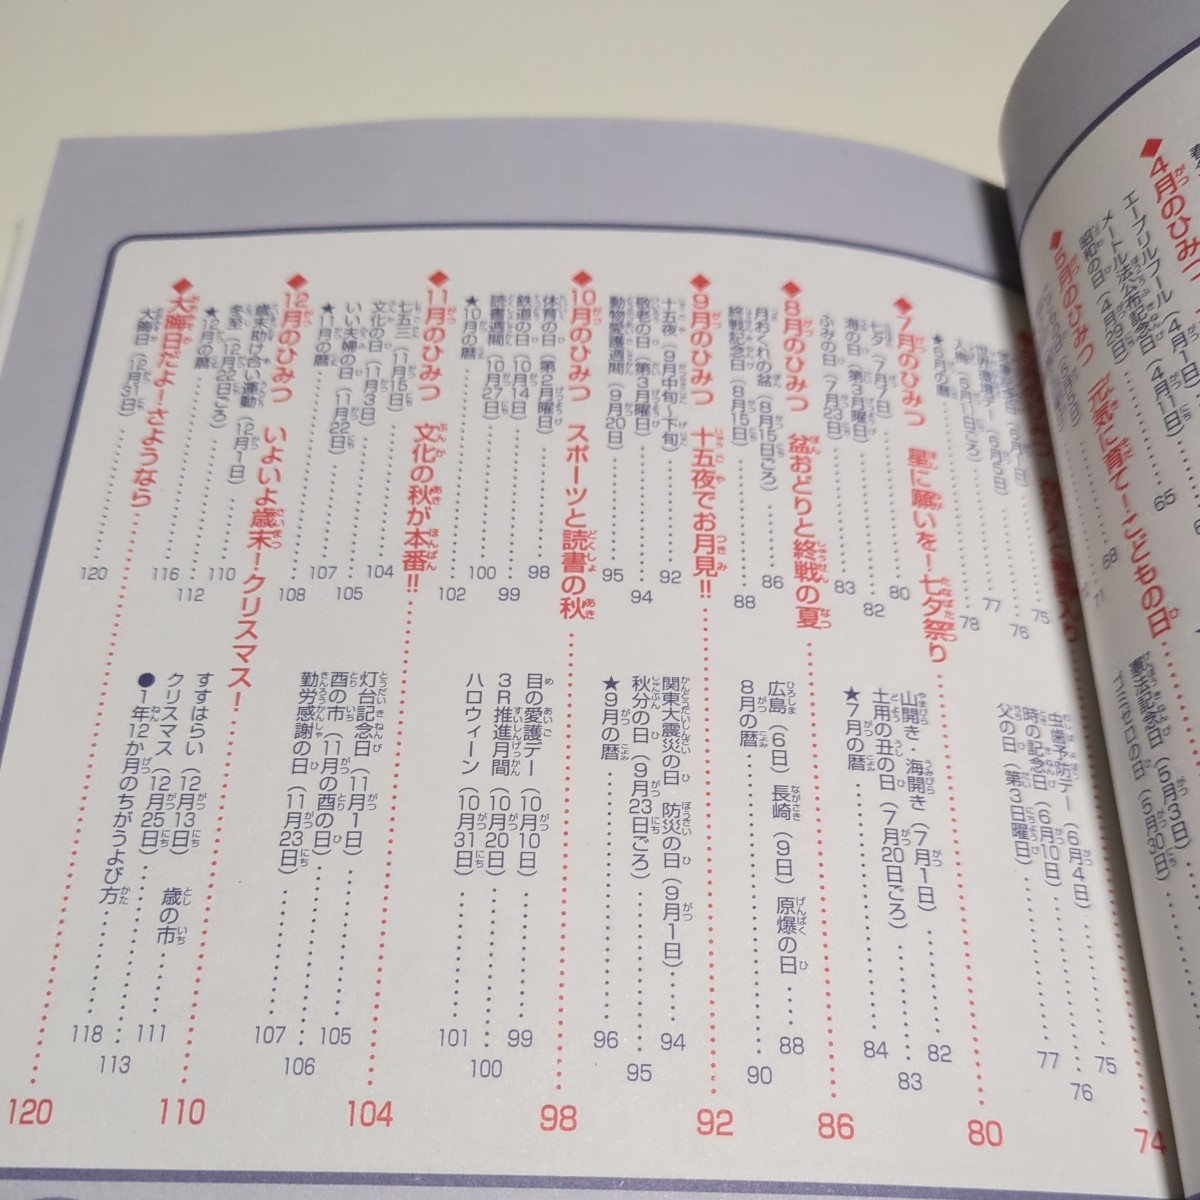 ◆4月のひみつ
エープリルフール(4月1日)
メートル法公布記念日(4月11日) 65
昭和の日(4月29日) 68
◆5月のひみつ 元気に育て!こどもの日
憲法記念日(5月3日)
ゴミゼロの日(5月30日)
74
虫歯予防デー(6月4日) 75
時の記念日(6月10日) 76
父の日(第3日曜日) 77
75
76
77
入梅(6月11日ごろ) 78
★6月の暦
◆7月のひみつ 星に願いを!七夕祭り 80
七夕(7月7日) 80
海の日(第3月曜日) 82
ふみの日(7月23日) 83
山開き・海開き(7月1日) 82
土用の丑の日(7月20日ごろ) 83
★7月の暦 84
◆8月のひみつ 盆おどりと終戦の夏 86
月おくれの盆(8月15日ごろ) 86
終戦記念日(8月15日) 88
広島(6日) 長崎(9日) 原爆の日 88
8月の暦 90
◆9月のひみつ 十五夜でお月見!! 92
十五夜(9月中旬〜下旬) 92
敬老の日(第3月曜日) 94
動物愛護週間(9月20日) 95
関東大震災の日 防災の日(9月1日) 94
秋分の日(9月23日ごろ) 95
★9月の暦 96
◆10月のひみつ スポーツと読書の秋 98
体育の日(第2月曜日) 98
鉄道の日(10月14日) 99
読書週間(10月27日)
★10月の暦 100
目の愛護デー(10月10日) 99
3R推進月間(10月20日) 100
ハロウィーン(10月31日) 101
◆11月のひみつ 文化の秋が本番!! 104
102
七五三(11月15日)
文化の日(11月3日) 104
いい夫婦の日(11月22日) 105
★11月の暦 107
灯台記念日(11月1日) 105
酉の市(11月の酉の日) 106
勤労感謝の日(11月23日) 107
◆12月のひみつ いよいよ歳末!クリスマス! 110
108
歳末助け合い運動(12月1日)
冬至(12月22日ごろ) 110
★12月の暦 112
116
すすはらい(12月13日) 歳の市 111
クリスマス(12月25日) 113
●1年12か月のちがうよび方 118
◆大晦日だよ!さようなら 120
大晦日(12月31日) 120